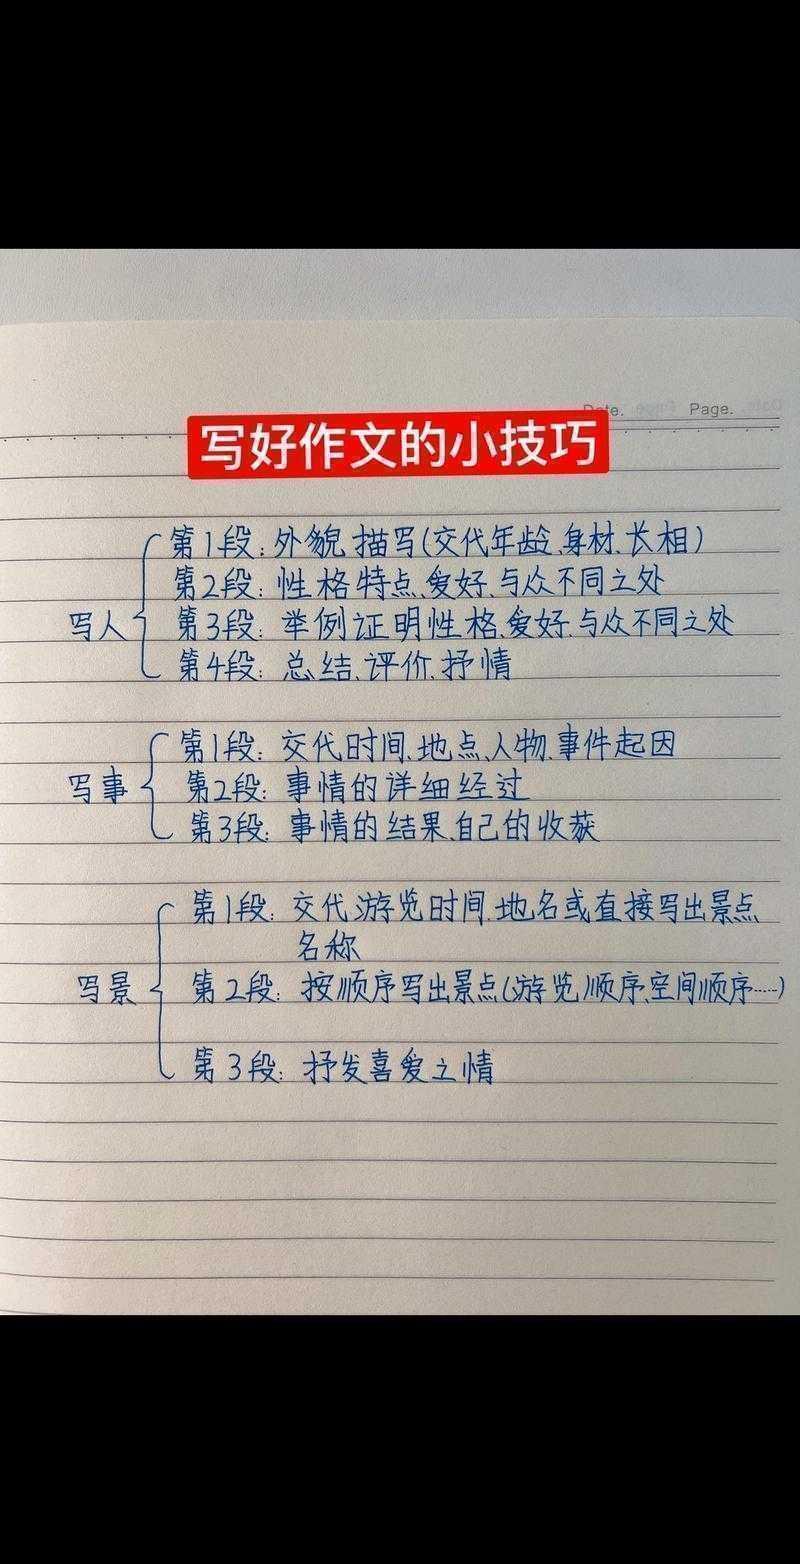 Date. Page.
写好作文的小技巧
写人
第1段:外貌描写(交代年龄、身材、长相)
第2段:性格特点、爱好、与众不同之处
第3段:举例证明性格、爱好、与众不同之处
第4段:总结、评价、抒情
写事
第1段:交代时间、地点、人物、事件起因
第2段:事情的详细经过
第3段:事情的结果、自己的收获
写景
第1段:交代游览时间、地名或直接写出景点
名称
第2段:按顺序写出景点(游览顺序、空间顺序……)
第3段:抒发喜爱之情